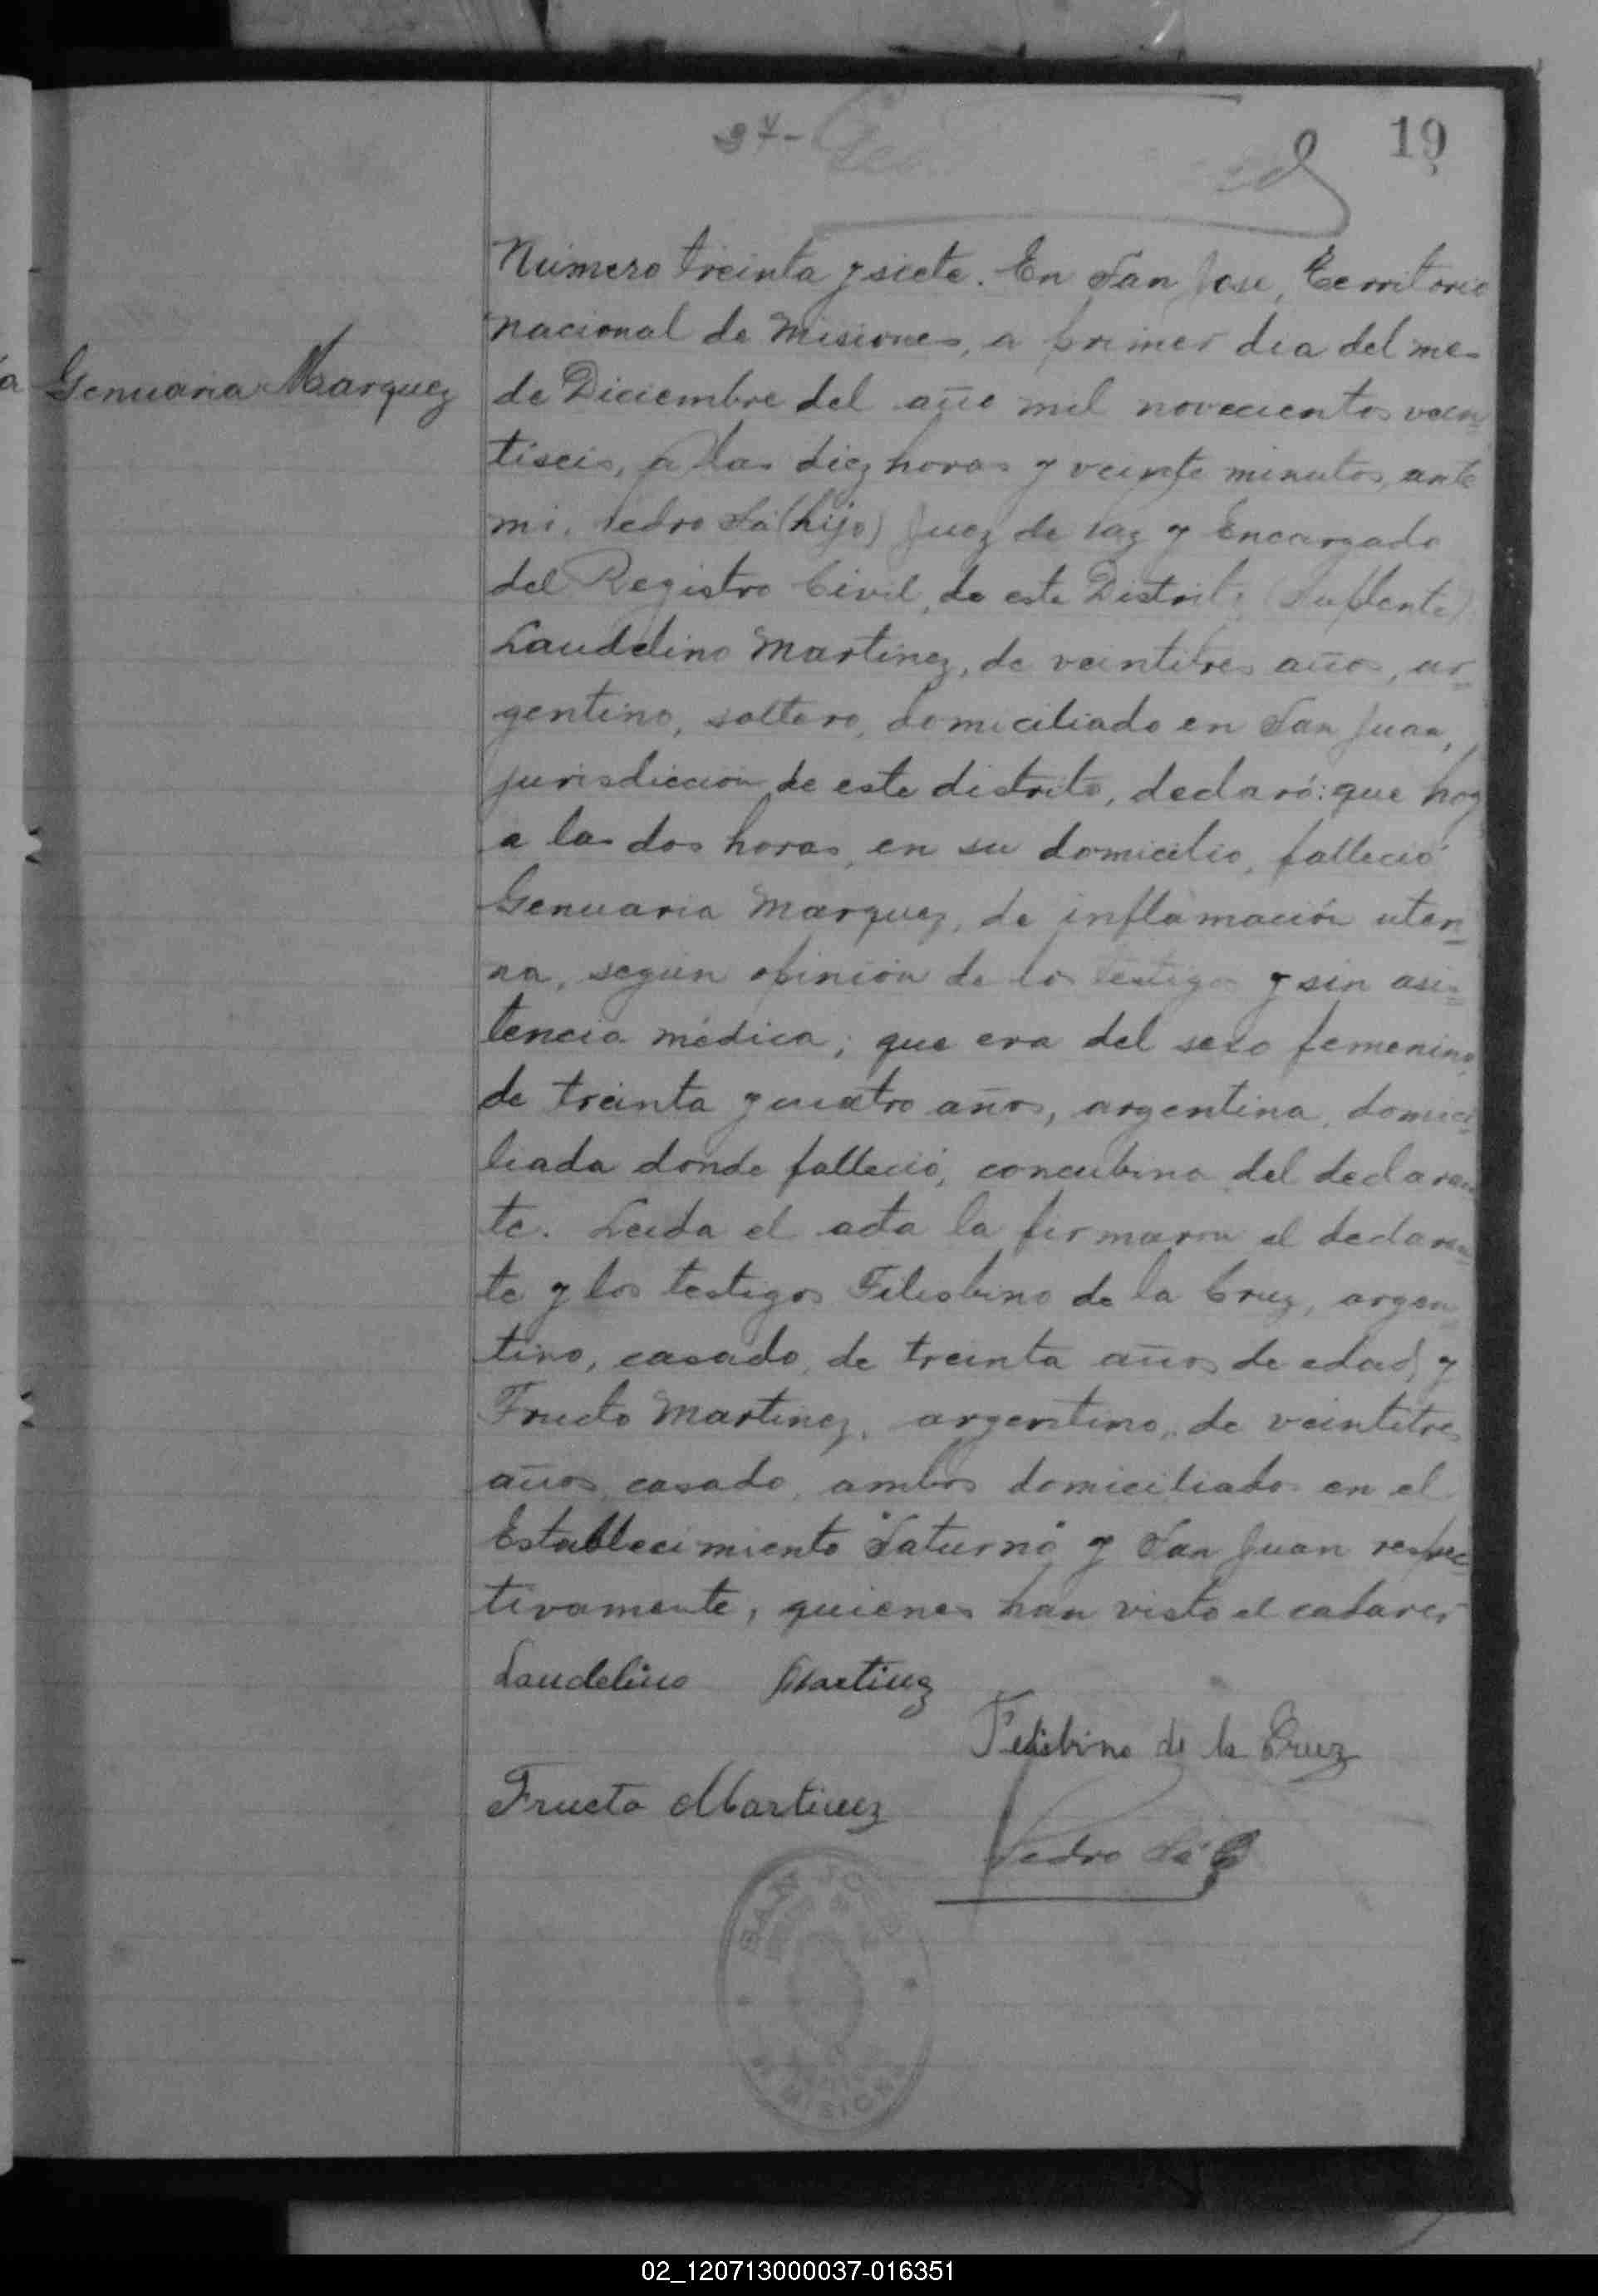 19
Genuaria Marquez
Número treinta y siete. En San José, Territorio
nacional de Misiones, a primer dia del mes
de Diciembre del año mil novecientos vein-
tiseis, a las diez horas y veinte minutos, ante
mi, Pedro Sá (hijo) Juez de Paz y Encargado
del Registro Civil, de este Distrito (Suplente)
Laudelino Martinez, de veintitres años, ar-
gentino, soltero, domiciliado en San Juan,
jurisdicción de este distrito, declaró: que hoy
a las dos horas, en su domicilio, falleció
Genuaria Marquez, de inflamación uteri-
na, según opinión de los testigos y sin asis-
tencia médica; que era del sexo femenino,
de treinta y cuatro años, argentina, domici-
liada donde falleció, concubina del declaran-
te. Leida el acta la firmaron el declaran-
te y los testigos Filisbino de la Cruz, argen-
tino, casado, de treinta años de edad, y
Fructo Martinez, argentino, de veintitres
años, casado, ambos domiciliados en el
Establecimiento "Saturno" y San Juan respec-
tivamente, quienes han visto el cadaver
Laudelino Martinez
Felisbino de la Cruz
Fructo Martinez
Pedro Sá
SAN JOSE
MISIONES
02_120713000037-016351